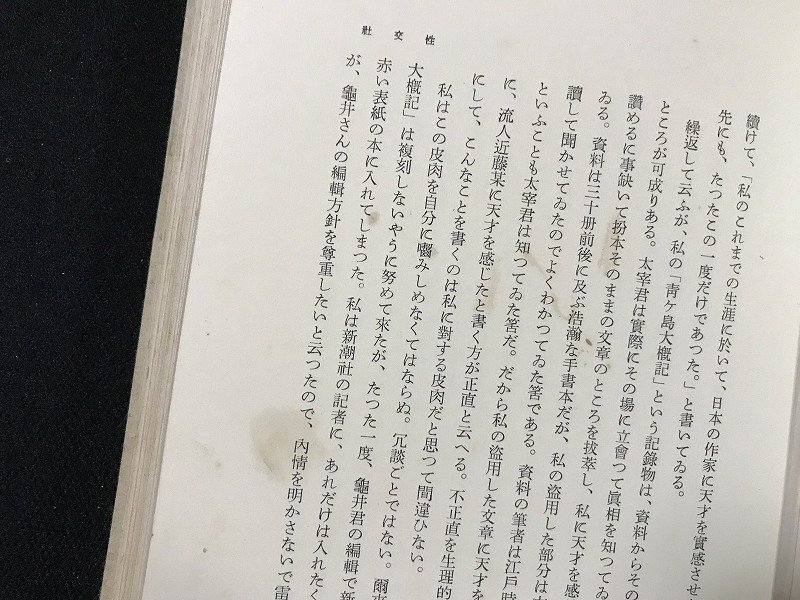 社交性
續けて、「私のこれまでの生涯に於いて、日本の作家に天才を實感させ
先にも、たつたこの一度だけであつた。」と書いてゐる。
繰返して云ふが、私の「青ケ島大槪記」という記錄物は、資料からその
ところが可成りある。太宰君は實際にその場に立會つて眞相を知つてゐ
讚めるに事缺いて扮本そのままの文章のところを拔萃し、私に天才を感
ゐる。資料は三十册前後に及ぶ浩瀚な手書本だが、私の盜用した部分は
讀して聞かせてゐたのでよくわかつてゐた筈である。資料の筆者は江戶時
といふことも太宰君は知つてゐた筈だ。だから私の盜用した文章に天才を
に、流人近藤某に天才を感じたと書く方が正直と云へる。不正直を生理的
にして、こんなことを書くのは私に對する皮肉だと思つて間違ひない。
私はこの皮肉を自分に嚙みしめなくてはならぬ。冗談ごとではない。爾來
大槪記」は複刻しないやうに努めて來たが、たつた一度、龜井君の編輯で新
赤い表紙の本に入れてしまつた。私は新潮社の記者に、あれだけは入れたく
が、龜井さんの編輯方針を尊重したいと云つたので、內情を明かさないで雷